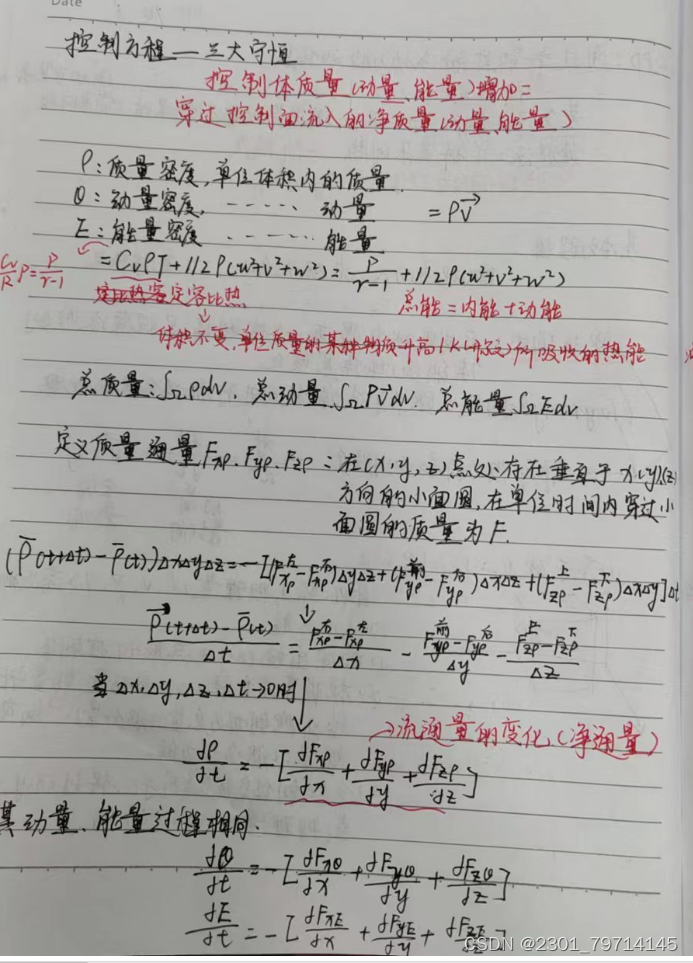 Date
控制方程—三大守恒
控制体质量(动量、能量)增加=
穿过控制面流入的净质量(动量、能量)
ρ:质量密度,单位体积内的质量.
Θ:动量密度, ----- 动量 = ρv⃗
E:能量密度 ----- 能量
= CvρT+1/2ρ(u²+v²+w²)= p/(r-1) +1/2ρ(u²+v²+w²)
Cv/R p = p/(r-1)
定容比热
总能=内能+动能
体积不变,单位质量的某种物质升高1K(开尔文)所吸收的热能
总质量:∫Ωρdv. 总动量∫Ωρv⃗dv. 总能量∫ΩEdv
定义质量通量Fxρ.Fyρ.Fzρ:在(x,y,z)点处.存在垂直于x(y)(z)
方向的小面圆,在单位时间内穿过小
面圆的质量为F.
(ρ̅(t+Δt)-ρ̅(t))ΔxΔyΔz=-[(Fxρ左-Fxρ右)ΔyΔz+(Fyρ前-Fyρ后)ΔxΔz+(Fzρ上-Fzρ下)ΔxΔy]Δt
(ρ̅(t+Δt)-ρ̅(t))/Δt = (Fxρ右-Fxρ左)/Δx - (Fyρ前-Fyρ后)/Δy - (Fzρ上-Fzρ下)/Δz
当Δx,Δy,Δz,Δt→0时
→流通量的变化(净通量)
dρ/dt = [dFxρ/dx + dFyρ/dy + dFzρ/dz]
其动量、能量过程相同.
dΘ/dt = -[dFxΘ/dx + dFyΘ/dy + dFzΘ/dz]
dE/dt = -[dFxE/dx + dFyE/dy + dFzE/dz]
CSDN @2301_79714145